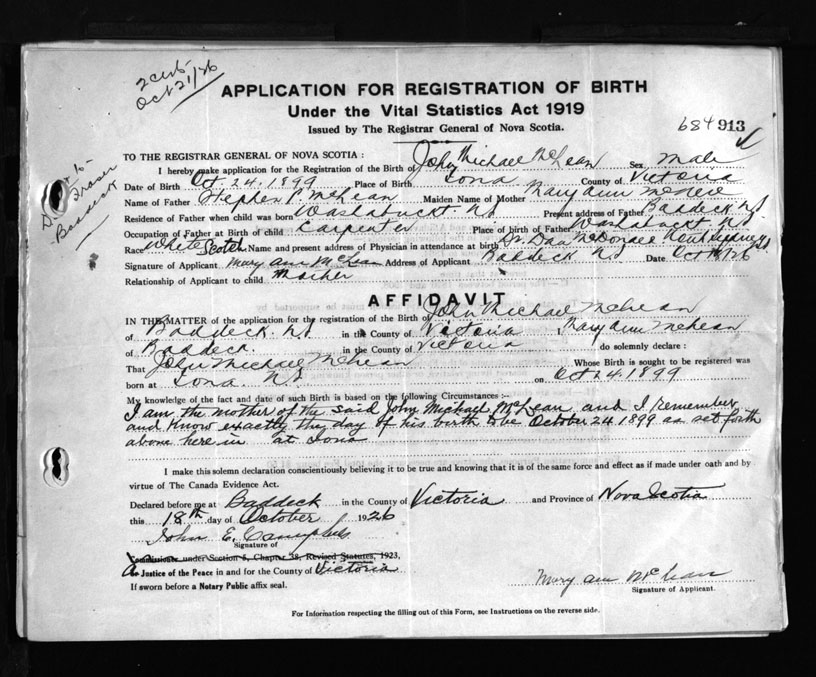 2 certs
Oct 21/26
APPLICATION FOR REGISTRATION OF BIRTH
Under the Vital Statistics Act 1919
Issued by The Registrar General of Nova Scotia.
684 913
Fraser
Baddeck
TO THE REGISTRAR GENERAL OF NOVA SCOTIA:
I hereby make application for the Registration of the Birth of John Michael McLean Sex Male
Date of Birth Oct 24. 1899 Place of Birth Iona County of Victoria
Name of Father Stephen P. McLean Maiden Name of Mother Mary Ann McNeil
Residence of Father when child was born Washabuckt. N.S. Present address of Father Baddeck N.S.
Occupation of Father at Birth of child Carpenter Place of birth of Father Washabuckt N.S.
Race White Scotch Name and present address of Physician in attendance at birth Dr. Dan McDonald North Sydney N.S.
Signature of Applicant Mary Ann McLean Address of Applicant Baddeck N.S. Date Oct /26
Relationship of Applicant to child Mother
AFFIDAVIT
IN THE MATTER of the application for the registration of the Birth of John Michael McLean
of Baddeck. N.S. in the County of Victoria I Mary Ann McLean
of Baddeck. in the County of Victoria do solemnly declare :
That John Michael McLean Whose Birth is sought to be registered was
born at Iona. N.S. on Oct 24. 1899
My knowledge of the fact and date of such Birth is based on the following Circumstances :-
I am the mother of the said John Michael McLean and I remember
and know exactly the day of his birth to be October 24 1899 as set forth
above here in at Iona
I make this solemn declaration conscientiously believing it to be true and knowing that it is of the same force and effect as if made under oath and by
virtue of The Canada Evidence Act.
Declared before me at Baddeck in the County of Victoria and Province of Nova Scotia
this 18th day of October 1926
John E. Campbell
Signature of
Commissioner under Section 5, Chapter 38, Revised Statutes, 1923,
A or Justice of the Peace in and for the County of Victoria
If sworn before a Notary Public affix seal.
Mary Ann McLean
Signature of Applicant.
For Information respecting the filling out of this Form, see Instructions on the reverse side.